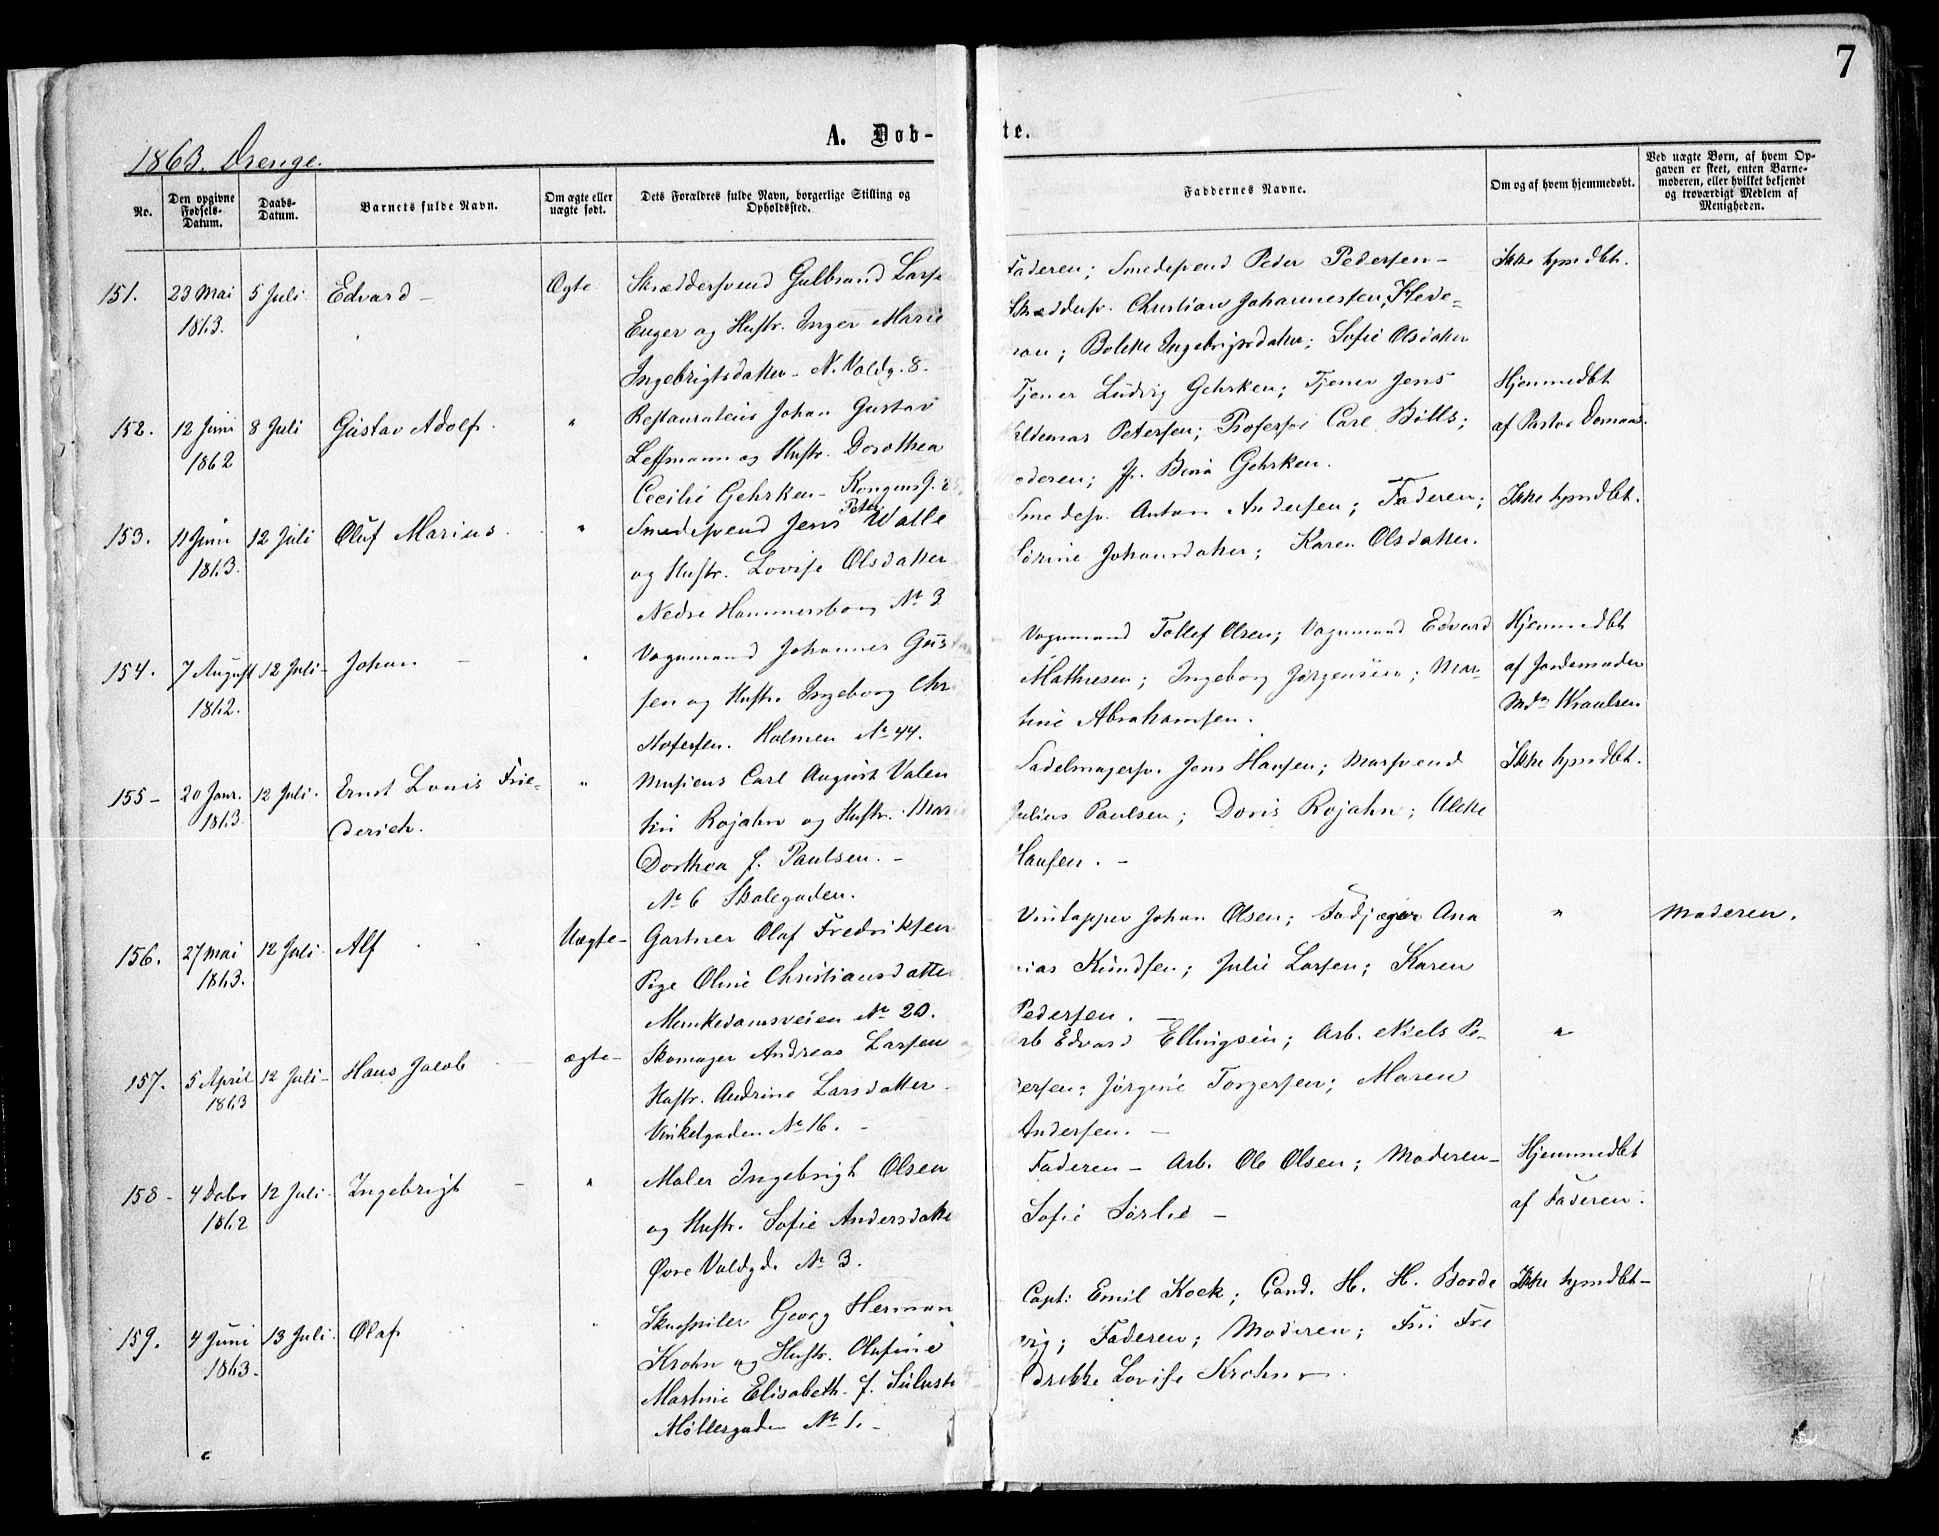 7
A. Døb-te.
1863. Drenge.
No.
Den opgivne Fødsels-Datum.
Daabs-Datum.
Barnets fulde Navn.
Om ægte eller uægte født.
Dets Forældres fulde Navn, borgerlige Stilling og Opholdssted.
Faddernes Navne.
Om og af hvem hjemmedøbt.
Ved uægte Børn, af hvem Opgaven er skeet, enten Barnemoderen, eller hvilket bekjendt og troværdigt Medlem af Menigheden.
151. 23 Mai 1863. 5 Juli Edvard - Ægte
Skræddersvend Gulbrand Larse
Enger og Hustr. Inger Marie
Ingebrigtsdatter - N. Voldg. 8.
Faderen; Smedesvend Peder Pedersen -
Skræddersv. Christian Johannessen, Hede-
man; Bolette Ingebrigtsdatter; Sofie Olsdatter
Ikke hjmdbt.
152. 12 Juni 1862 8 Juli Gustav Adolf. "
Restaurateur Johan Gustav
Leffmann og Hustr. Dorothea
Cecilie Gehrken - Kongensg.
Tjener Ludvig Gehrken; Tjener Jens
Valdemar Petersen; Professor Carl Bills;
oderen; Jf. Bina Gehrken.
Hjemmedbt
af Pastor
153. 11 Juni 1863. 12 Juli Oluf Marius. "
Smedesvend Jens Peter Walle
og Hustr. Lovise Olsdatter
Nedre Hammersborg No 3
Smedesv. Anton Andersen; Faderen;
Sørine Johansdatter; Karen Olsdatter.
Ikke hjmdbt.
154. 7 August 1862. 12 Juli - Johan - "
Vognmand Johannes Gus
sen og Hustr. Ingeborg Chr
stofersen. Holmen No 44.
Vognmand Tollef Olsen; Vognmand Edvard
Mathiesen; Ingeborg Jørgensen; Mar-
tine Abrahamsen.
Hjemmedbt
af Jordemoder
Mdm Kraulsen
155 - 20 Janr. 1863. 12 Juli. Ernst Louis Frie-
derich. "
Musicus Carl August Valen
tin Rojahn og Hustr. Mar
Dorthea f. Paulsen. -
No 6 Skolegaden.
Sadelmagersv. Jens Hansen; Marsvend
Julius Paulsen; Doris Rojahn; Alette
Hansen. -
Ikke hjmdbt.
156. 27 Mai 1863. 12 Juli. Alf Uægte -
Gartner Olaf Fredriksen
Pige Oline Christiansdatte
Munkedamsveien No 20.
Vintapper Johan Olsen; Ana
nias Knudsen; Julie Larsen; Karen
Pedersen. -
"
Moderen.
157. 5 April 1863 12 Juli - Hans Jacob ægte -
Skomager Andreas Larsen
Hustr. Andrine Larsdatter
Vinkelgaden No 16. -
Arb Edvard Ellingsen; Arb. Niels Pe-
dersen; Jørgine Torgersen; Maren
Andersen. -
"
158 - 4 Debr 1862 12 Juli. Ingebrigt - "
Maler Ingebrigt Olsen
og Hustr. Sofie Andersdatte
Øvre Voldgd. No 3.
Faderen - Arb. Ole Olsen; Moderen -
Sofie Sørlie -
Hjemmedbt
af Faderen.
159. 4 Juni 1863. 13 Juli. Olaf "
Skuespiller Georg Herman
Krohn og Hustr. Olufine
Martine Elisabeth f.
Møllergaden No 1. -
Capt: Emil Kock; Cand. H. H. Borde
vig; Faderen; Moderen; Frk Fre
drikke Lovise Krohn -
Ikke hjmdbt -